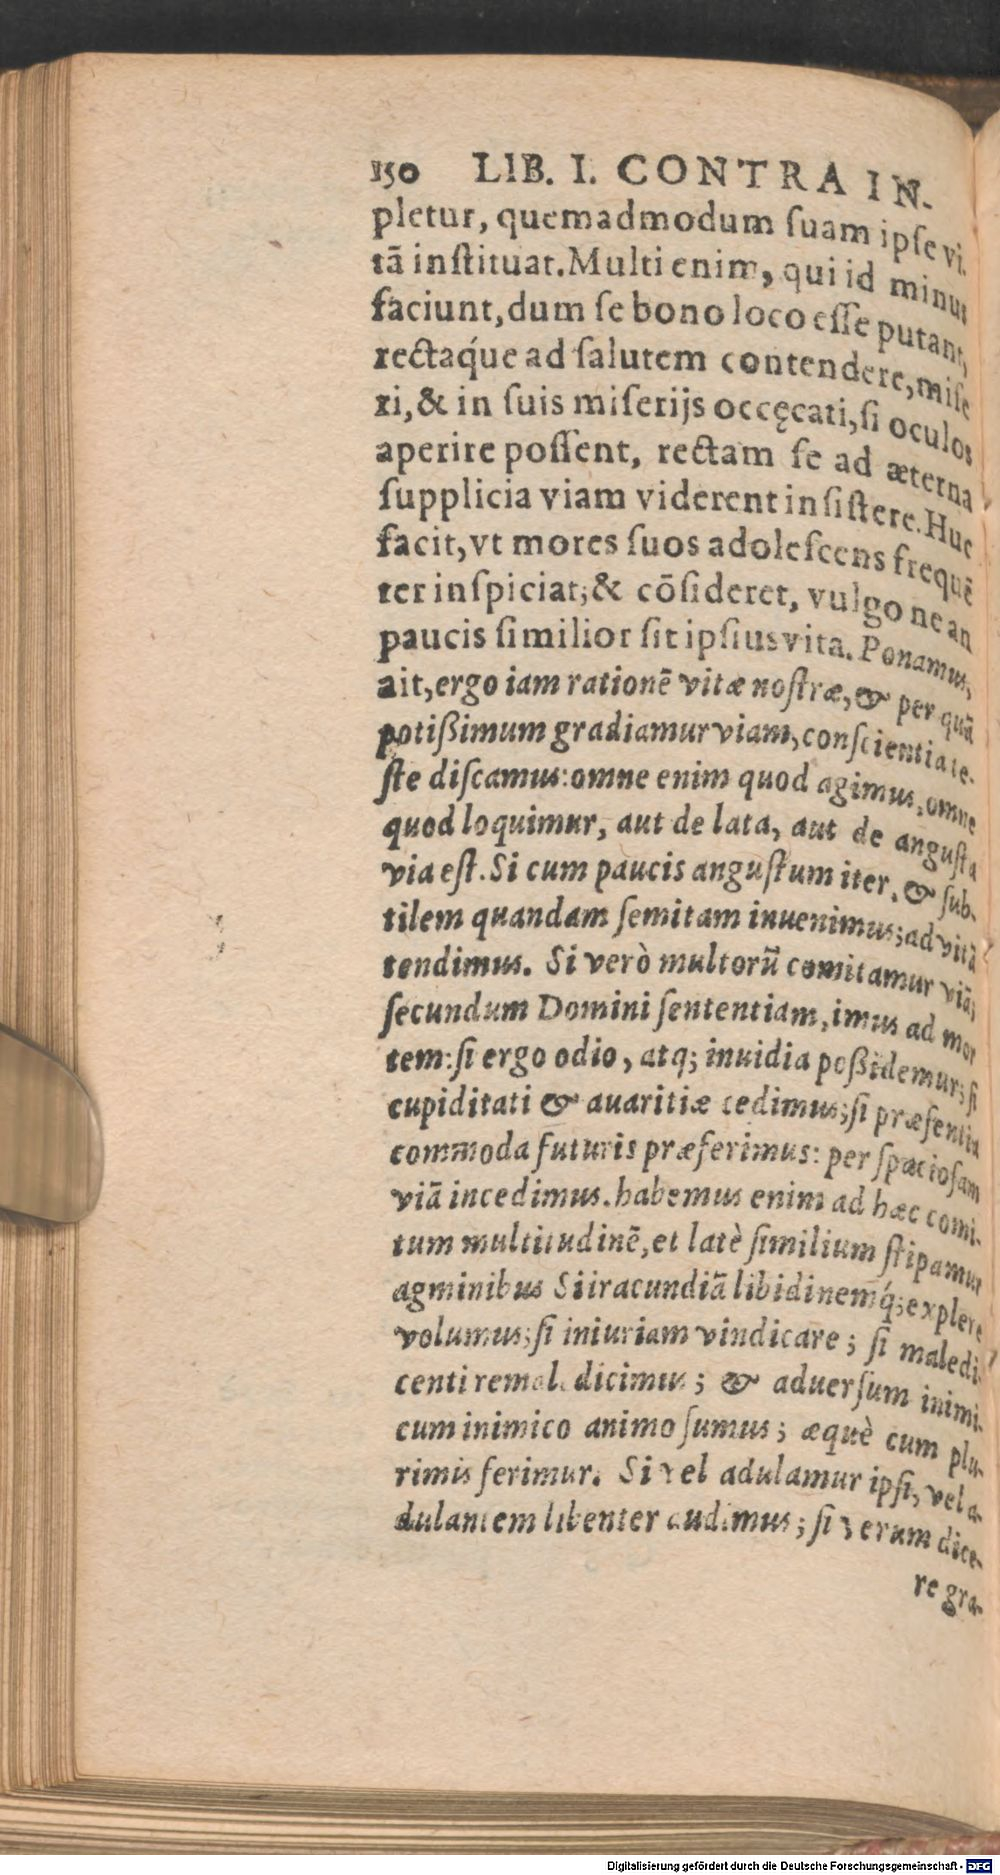 150 LIB. I. CONTRA IN-
pletur, quemadmodum ſuam ipſe vi.
tā inſtituat. Multi enim, qui id minus
faciunt, dum ſe bono loco eſſe putant,
rectaq́ue ad ſalutem contendere, miſe
ri, & in ſuis miſerijs occęcati, ſi oculos
aperire poſſent, rectam ſe ad æterna
ſupplicia viam viderent inſiſtere. Huc
facit, vt mores ſuos adoleſcens frequē
ter inſpiciat; & cōſideret, vulgo ne an
paucis ſimilior ſit ipſius vita. Ponamus,
ait, ergo iam rationē vitæ noſtræ, & per quā
potißimum gradiamur viam, conſcientia te-
ſte diſcamus: omne enim quod agimus, omne
quod loquimur, aut de lata, aut de anguſta
via eſt. Si cum paucis anguſtum iter, & ſub-
tilem quandam ſemitam inuenimus; ad vitā
tendimus. Si verò multorū comitamur viā,
ſecundum Domini ſententiam, imus ad mor
tem: ſi ergo odio, atq; inuidia poßidemur; ſi
cupiditati & auaritiæ cedimus; ſi præſentia
commoda futuris præferimus: per ſpacioſam
viā incedimus. habemus enim ad hæc comi-
tum multitudinē, et latè ſimilium ſtipamur
agminibus Si iracundiā libidinemq́; explere
volumus; ſi iniuriam vindicare; ſi maledi-
centi remaledicimus; & aduerſum inimi-
cum inimico animo ſumus; æquè cum plu-
rimis ferimur. Si vel adulamur ipſi, vel a-
dulantem libenter audimus; ſi verum dice-
re gra-
Digitalisierung gefördert durch die Deutsche Forschungsgemeinschaft - DFG